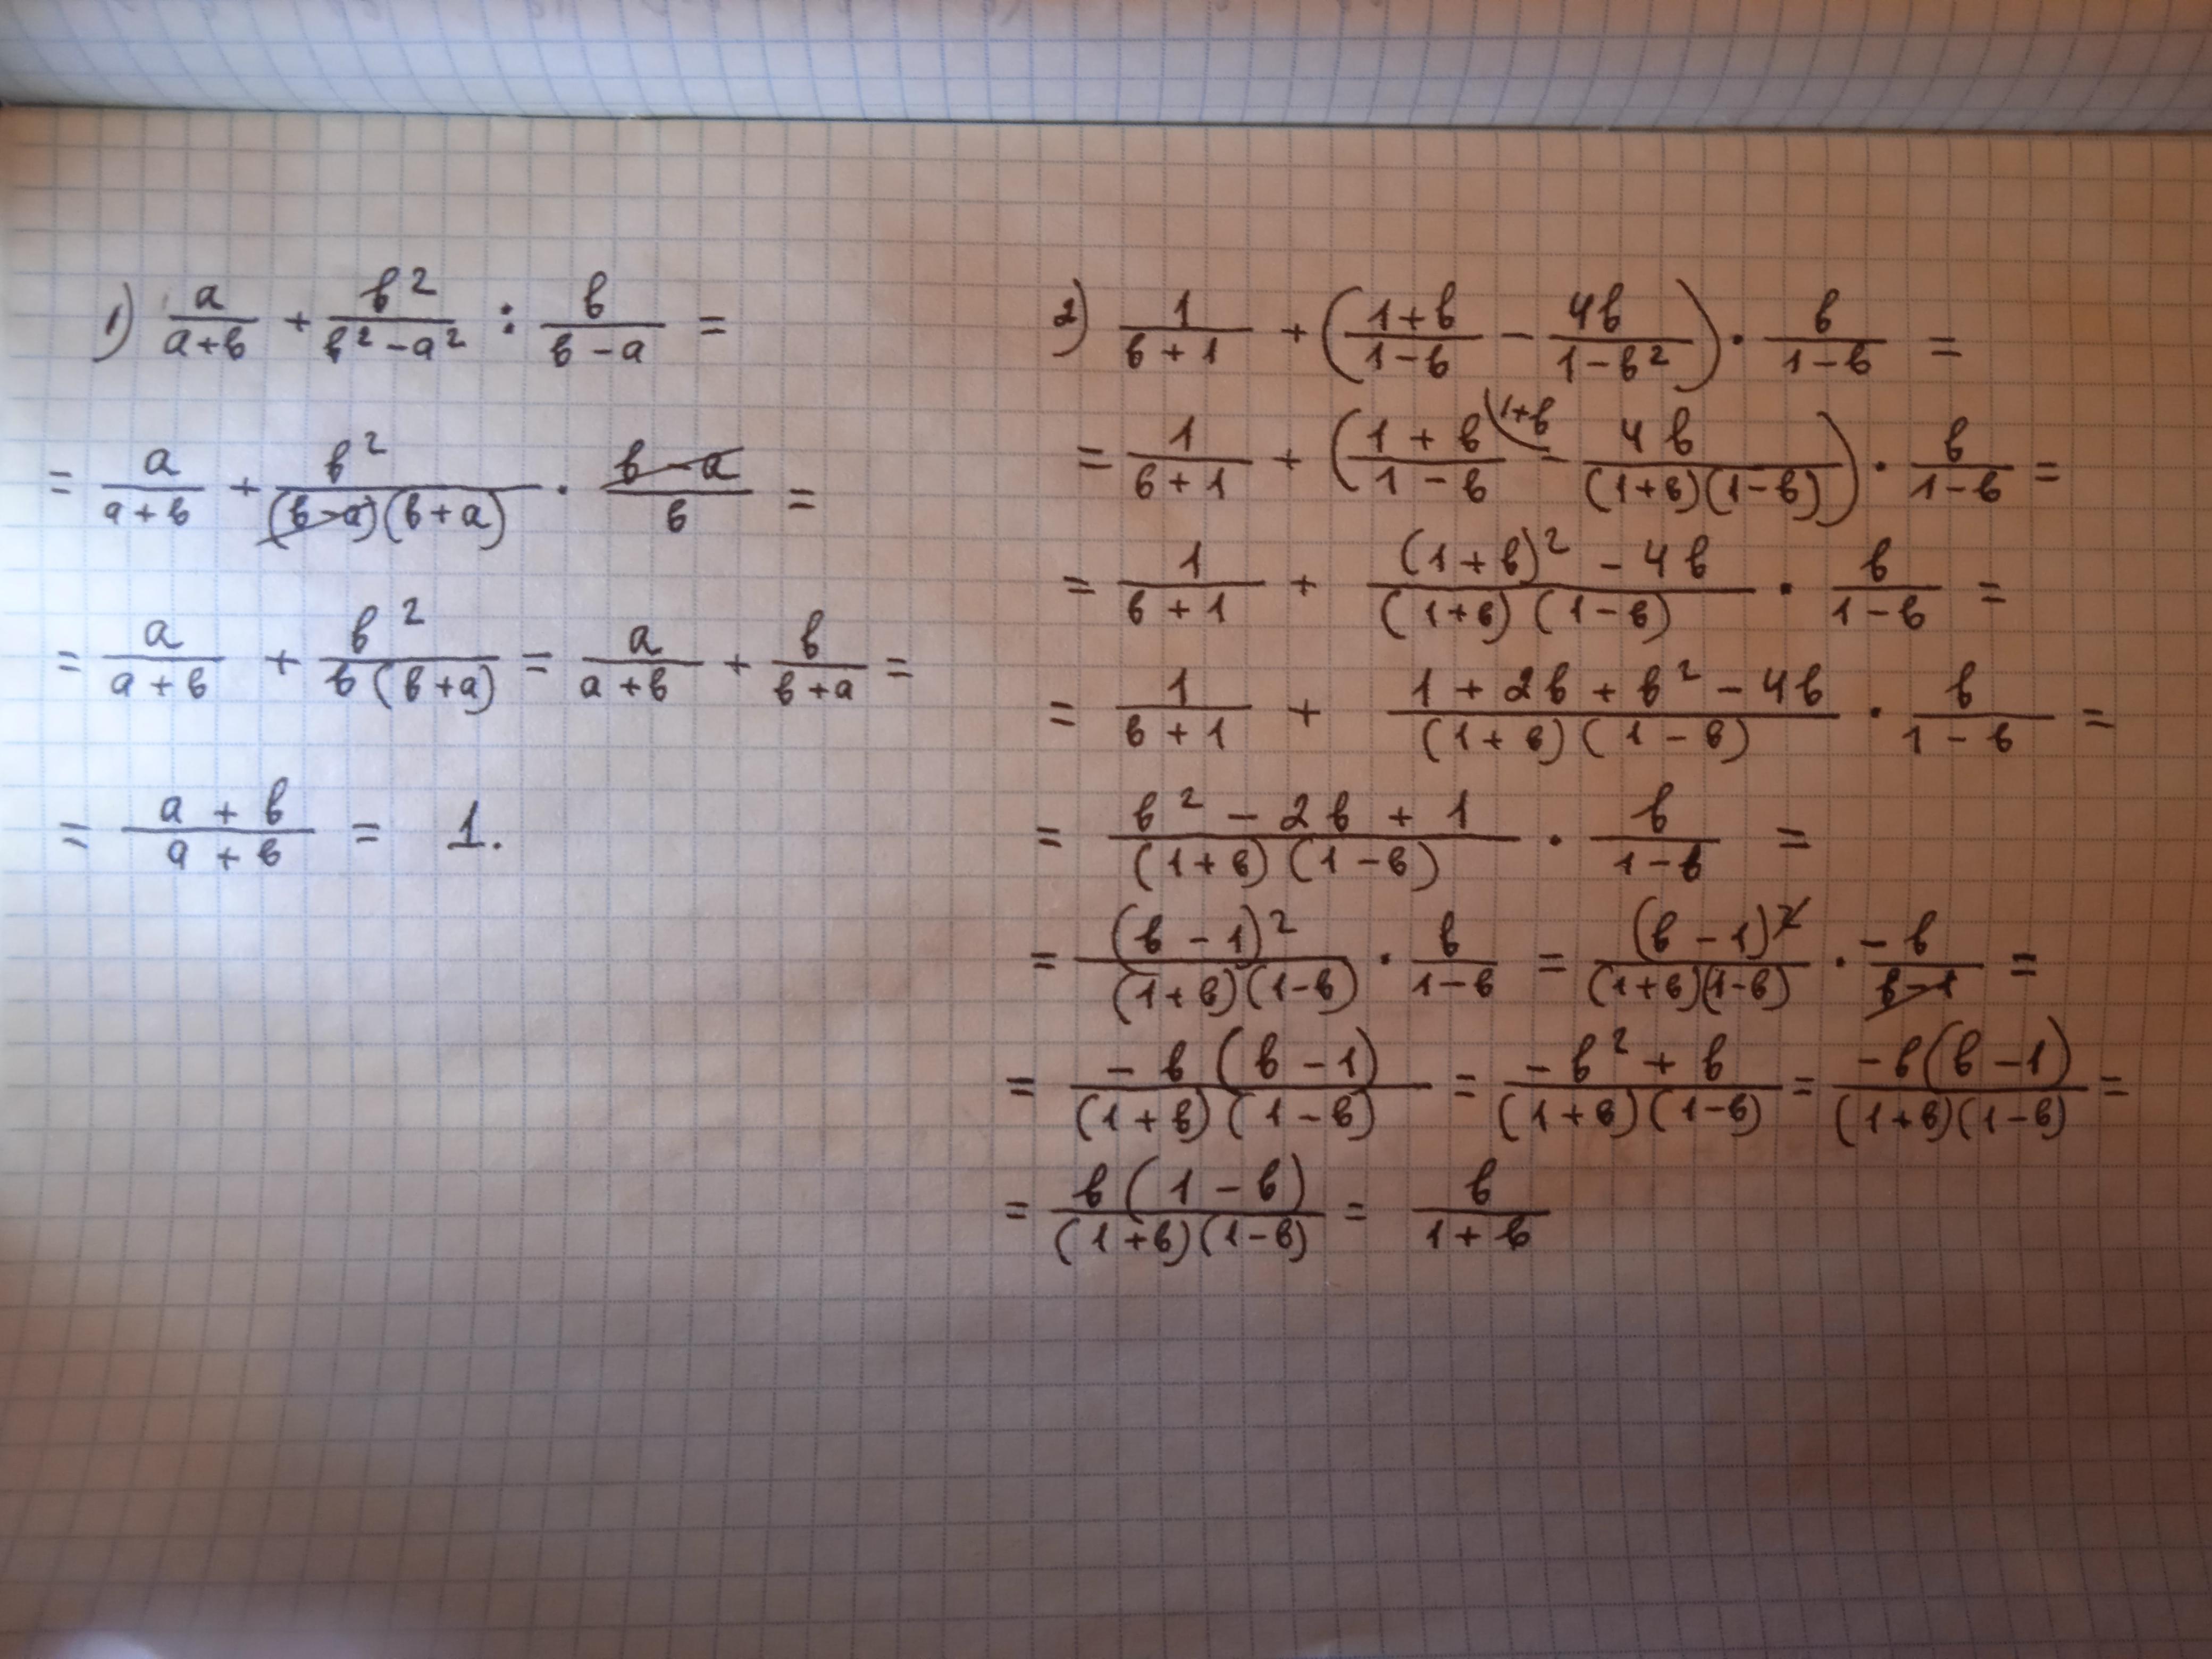 1) a/(a+b) + b²/(b²-a²) : b/(b-a) =
= a/(a+b) + b²/((b-a)(b+a)) · (b-a)/b =
= a/(a+b) + b²/(b(b+a)) = a/(a+b) + b/(b+a) =
= (a+b)/(a+b) = 1.
2) 1/(b+1) + ((1+b)/(1-b) - 4b/(1-b²)) · b/(1-b) =
= 1/(b+1) + ((1+b)/(1-b) \1+b - 4b/((1+b)(1-b))) · b/(1-b) =
= 1/(b+1) + ((1+b)² - 4b)/((1+b)(1-b)) · b/(1-b) =
= 1/(b+1) + (1+2b+b²-4b)/((1+b)(1-b)) · b/(1-b) =
= (b²-2b+1)/((1+b)(1-b)) · b/(1-b) =
= (b-1)²/((1+b)(1-b)) · b/(1-b) = (b-1)²/((1+b)(1-b)) · -b/(b-1) =
= -b(b-1)/((1+b)(1-b)) = (-b²+b)/((1+b)(1-b)) = -b(b-1)/((1+b)(1-b)) =
= b(1-b)/((1+b)(1-b)) = b/(1+b)